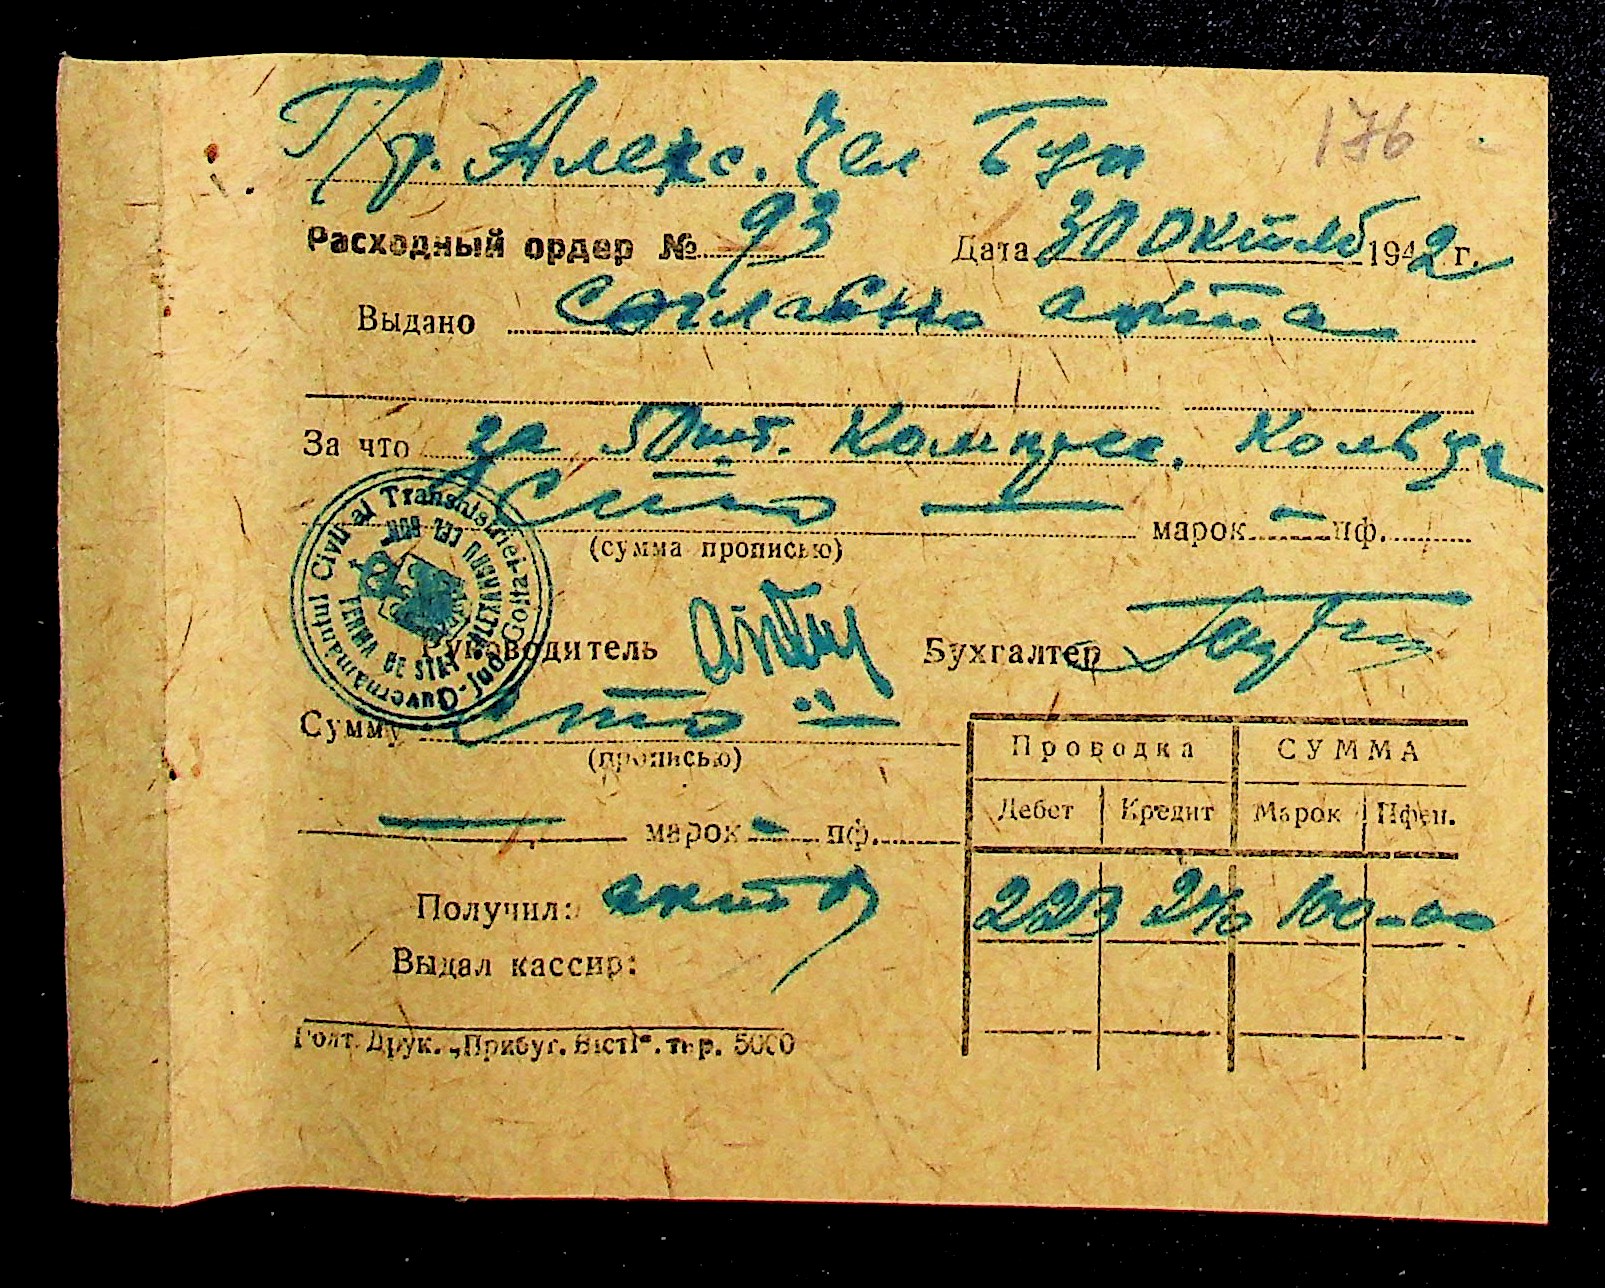 Гр. Алекс. Чел Бун
176
Расходный ордер № 93 Дата 30 октяб 1942 г.
Выдано согласно акта
За что за 50 шт. Компрес. Кольца
Сто — марок - пф.
(сумма прописью)
Guvernamantul Civil al Transnistriei
Jud. Golta
FERMA DE STAT ALEXANDRU CEL BUN
Руководитель Бухгалтер
Сумму Сто
(прописью)
— марок - пф.
Проводка СУММА
Дебет Кредит Марок Пфен.
223 240 100-00
Получил:
Выдал кассир:
Голт. Друк. „Прибуг. Вісті“. тир. 5000